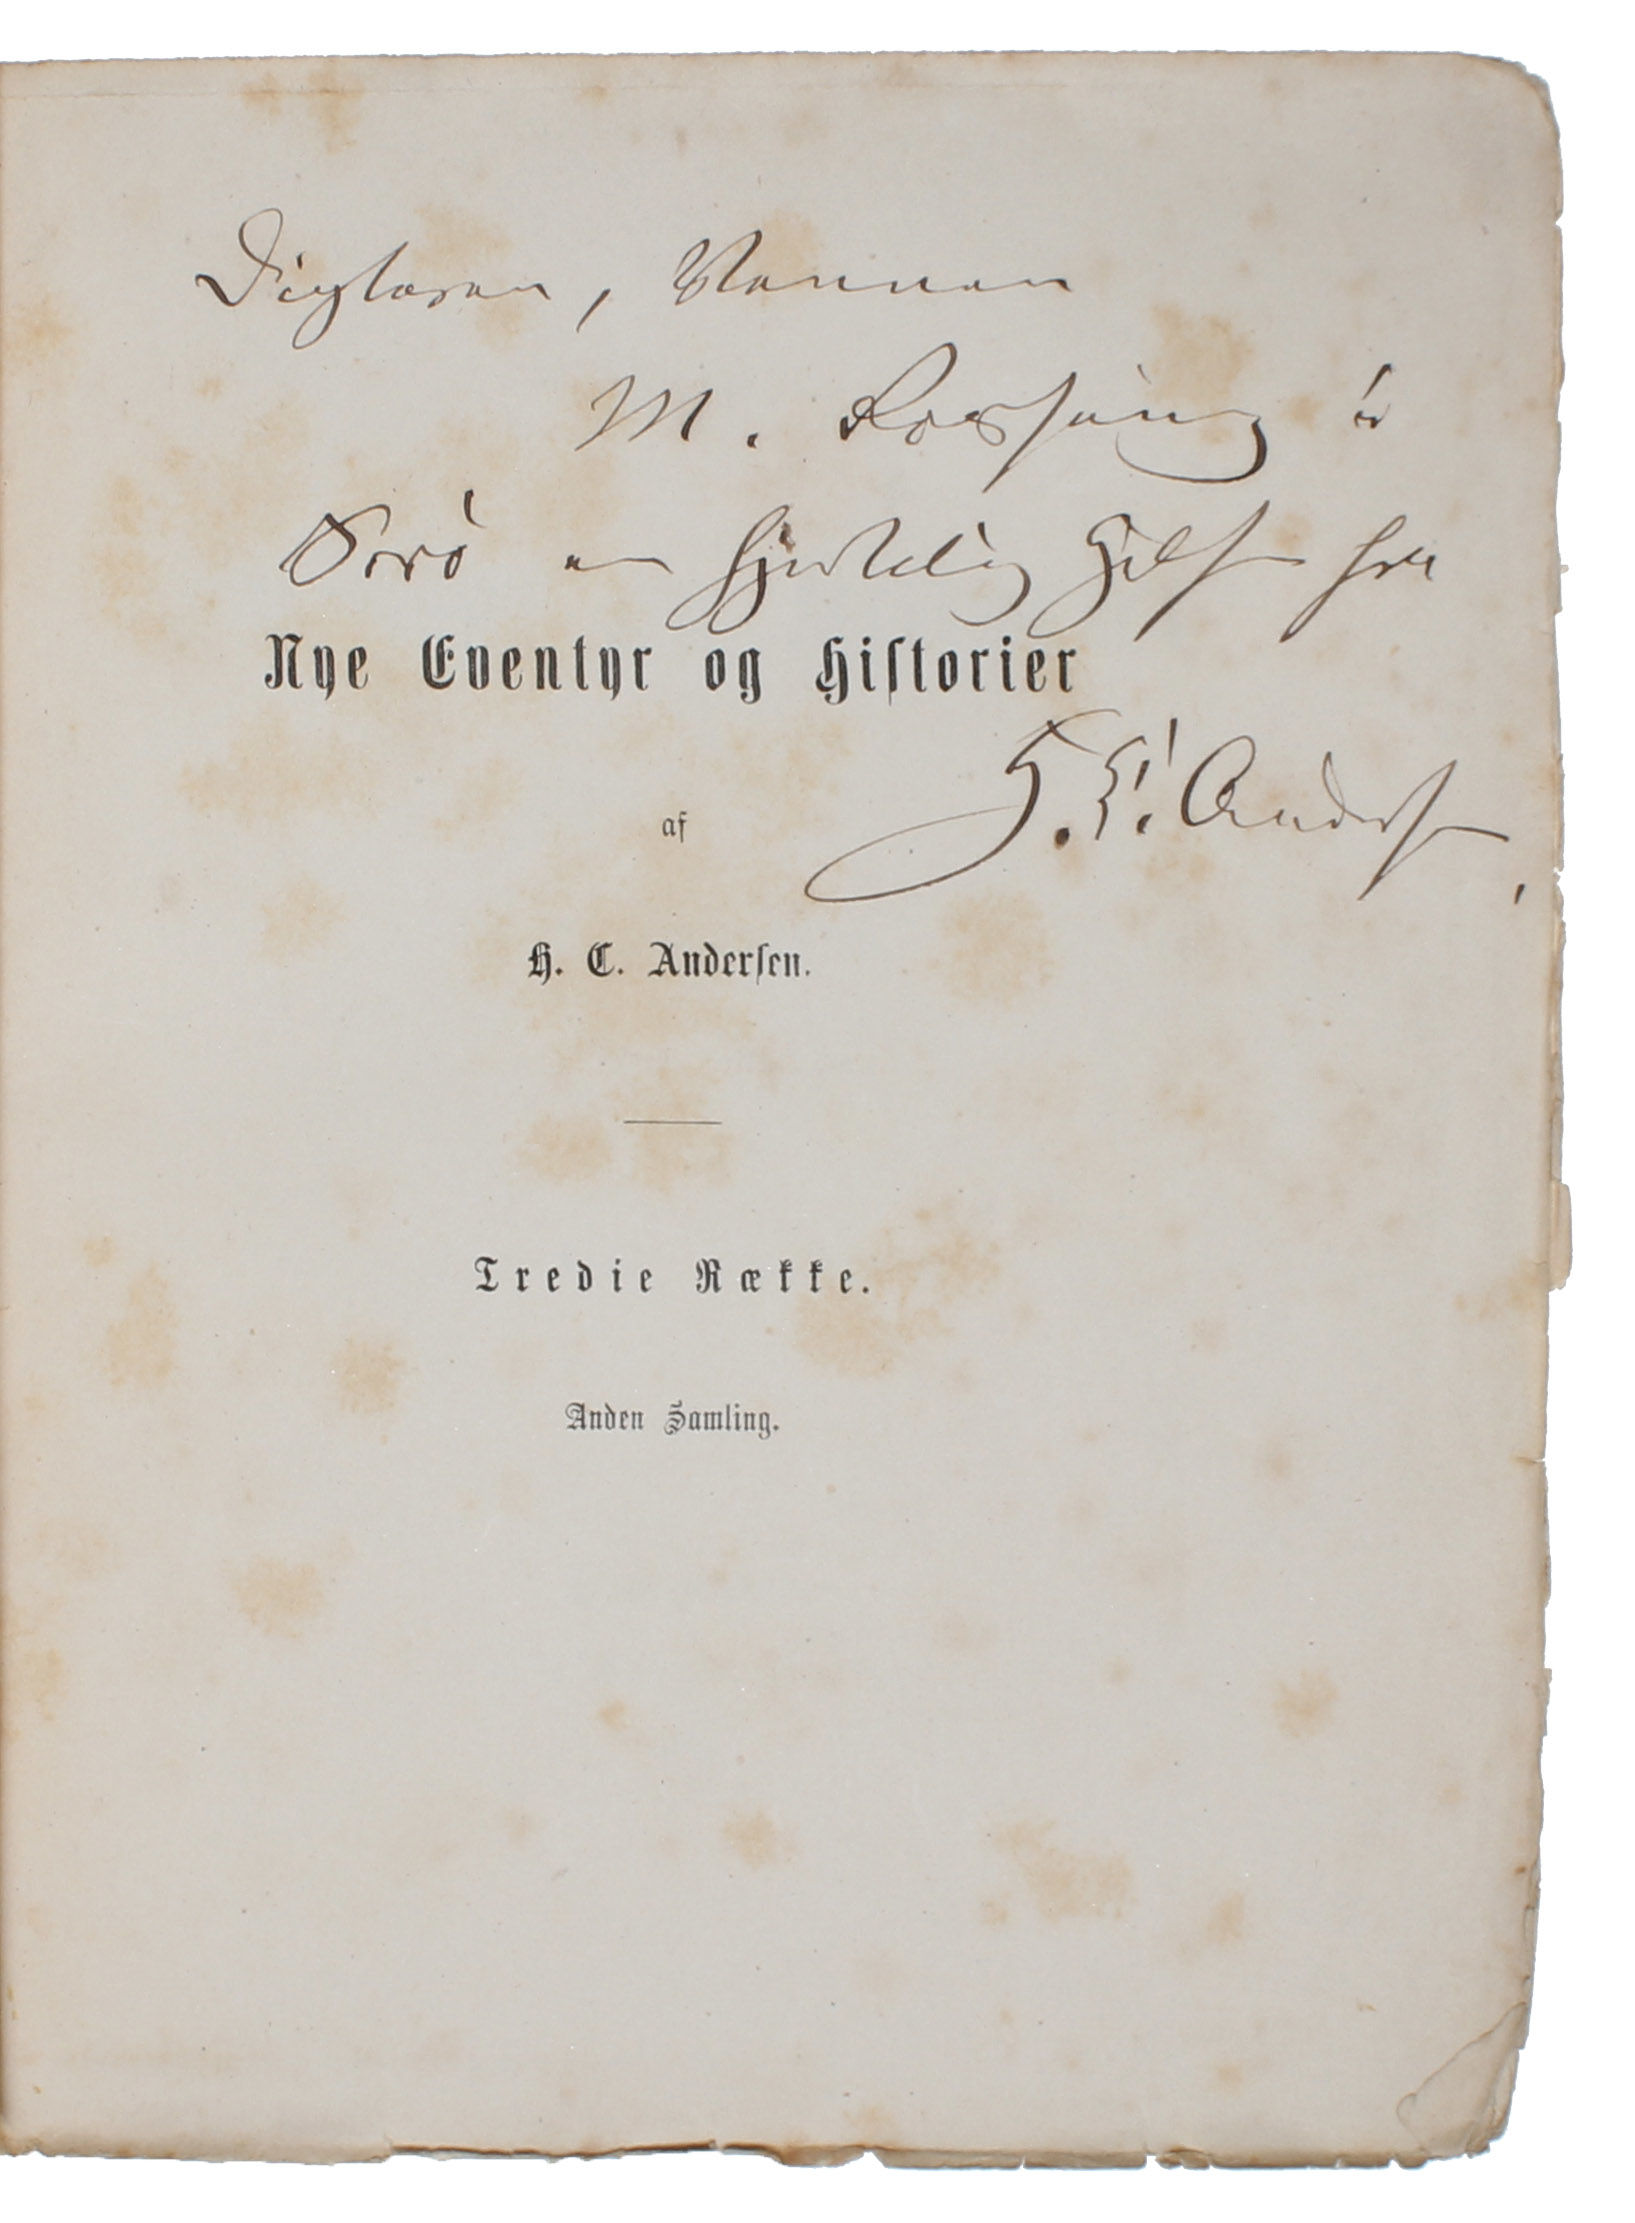 Digteren, Vennen
M. Rossing i
Sorö en hjertelig Hilsen fra
Nye Eventyr og Historier
H. C. Andersen
af
H. C. Andersen.
Tredie Række.
Anden Samling.